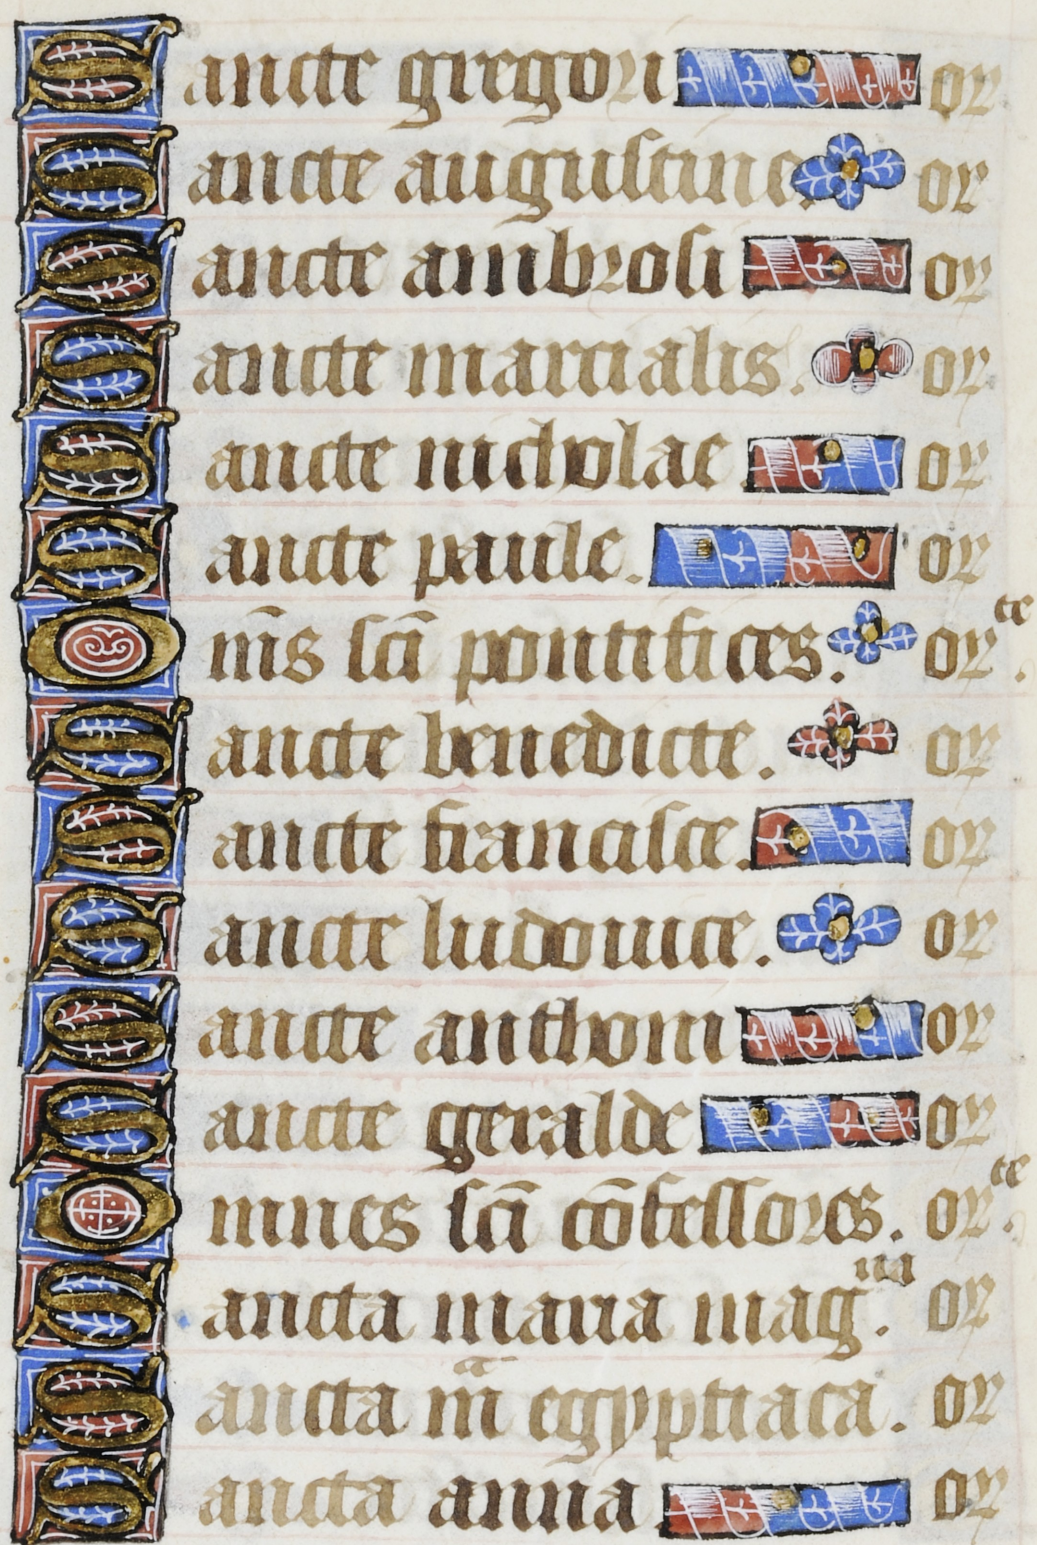 Sancte gregori or
Sancte augustine. or
Sancte ambrosi. or
Sancte martialis. or
Sancte nicholae or
Sancte paule. or
Om̄s sc̄i pontifices. or te.
Sancte benedicte. or
Sancte francisce. or
Sancte ludouice. or
Sancte anthoni or
Sancte geralde or
Omnes sc̄i cōfessores. or te.
Sancta maria mag. or
Sancta m̄a egyptiaca. or
Sancta anna or